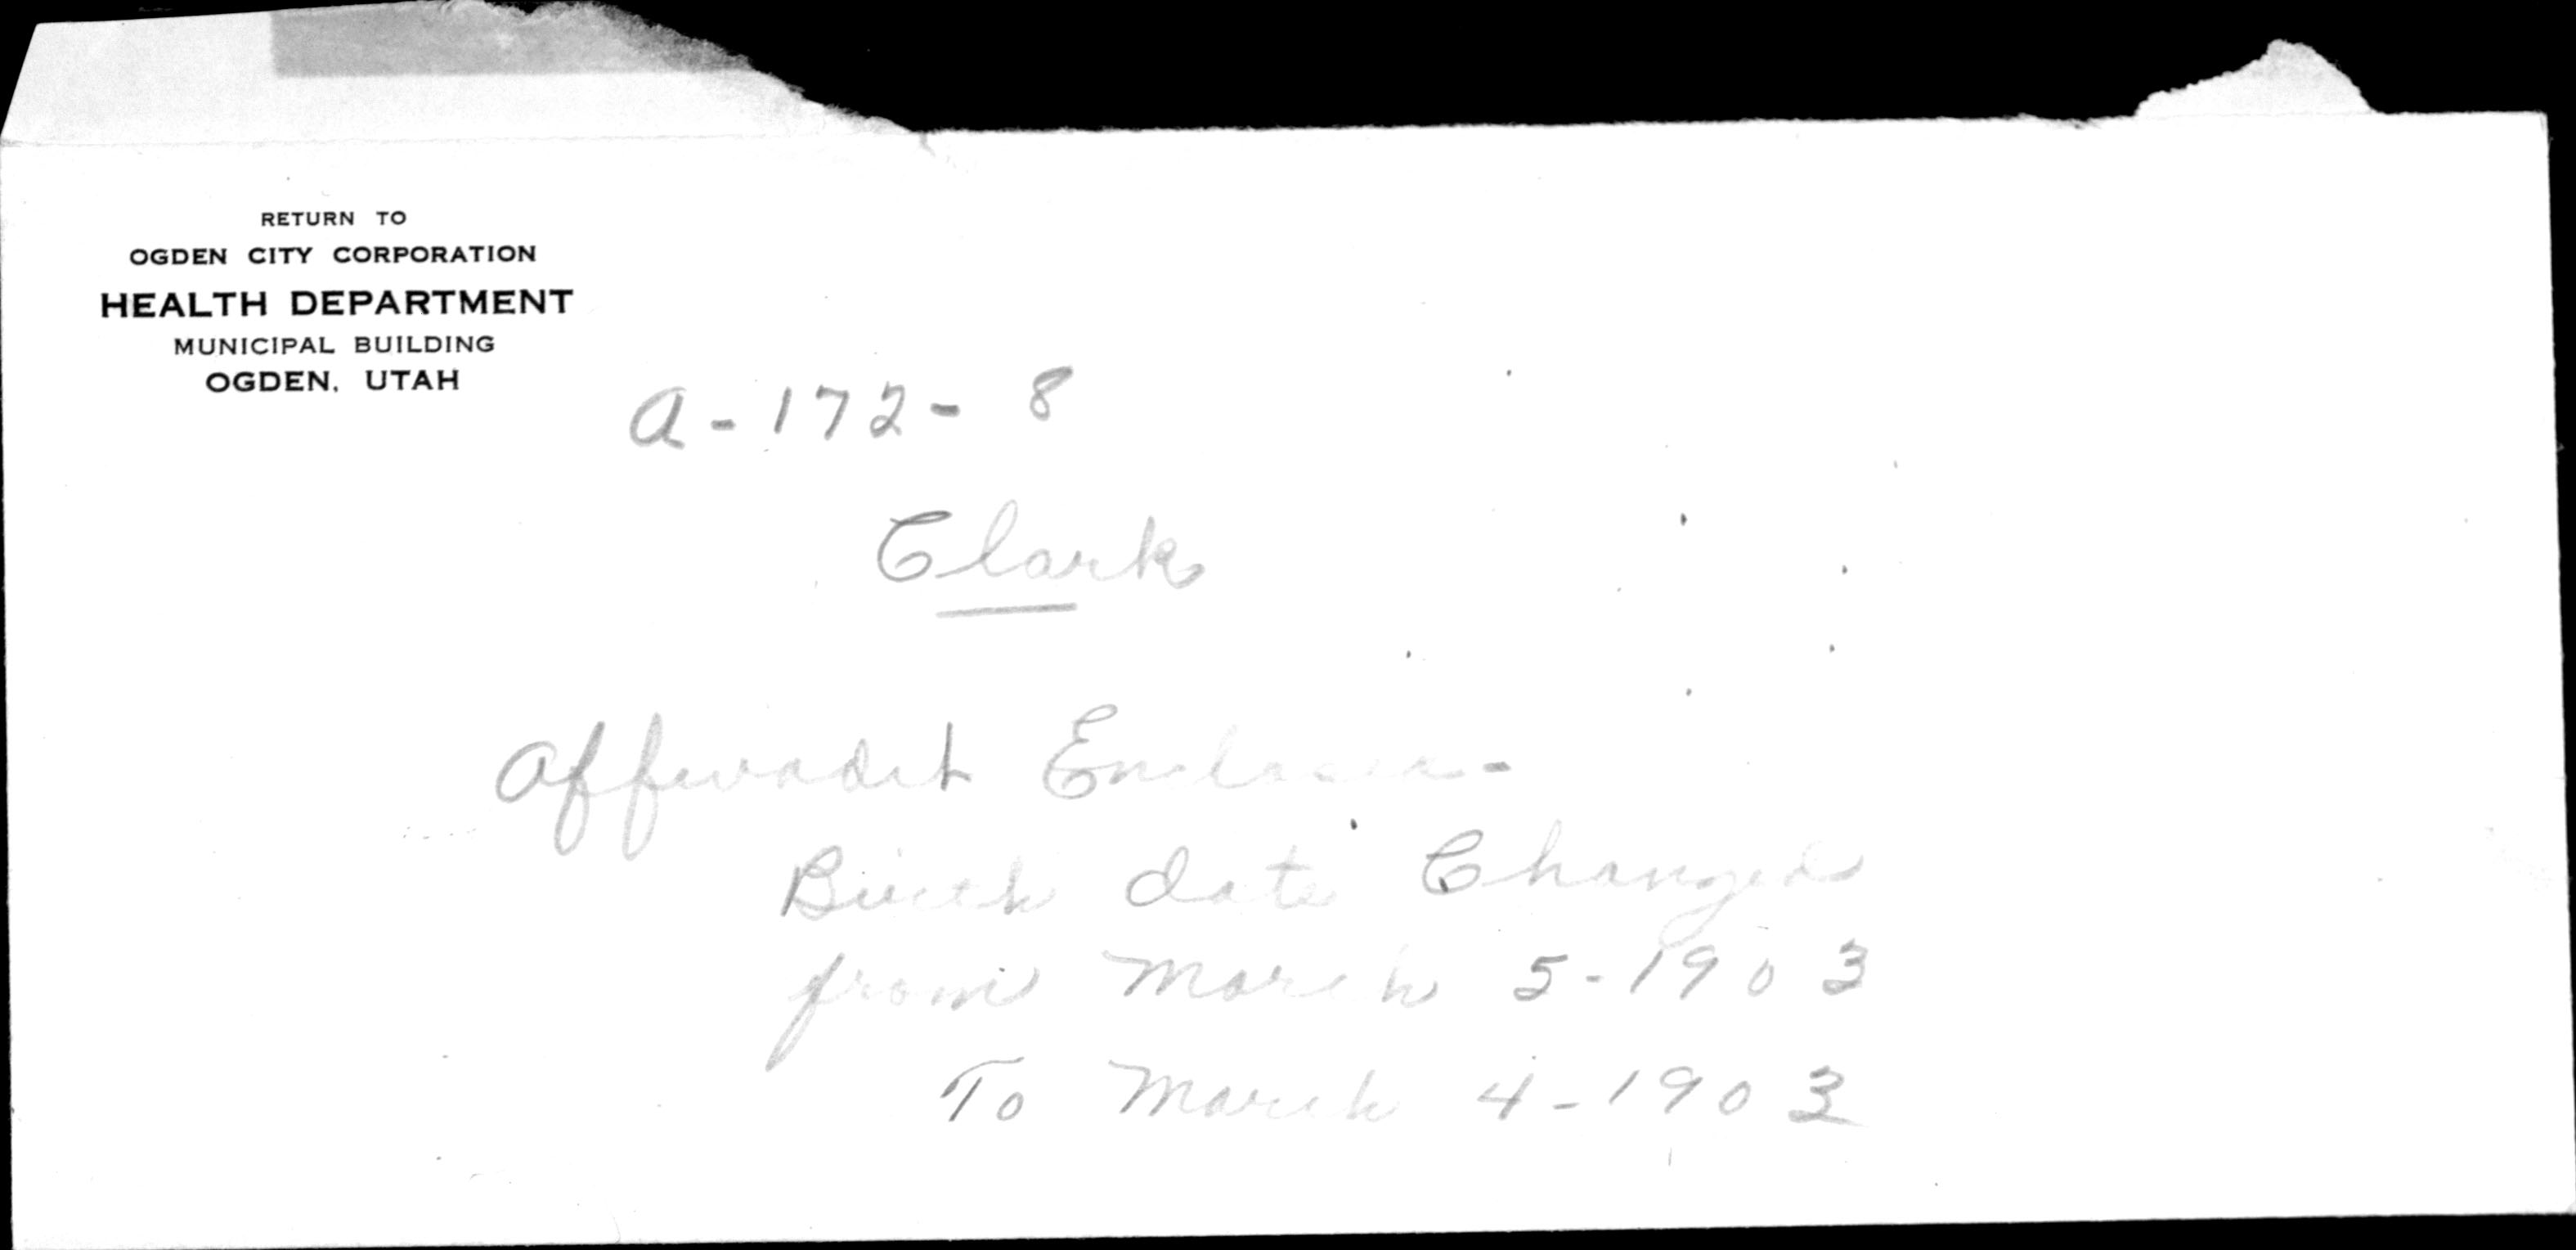 RETURN TO
OGDEN CITY CORPORATION
HEALTH DEPARTMENT
MUNICIPAL BUILDING
OGDEN, UTAH
A-172-8
Clark
Affivadit
Birth date Changed
from March 5-1903
To March 4-1903